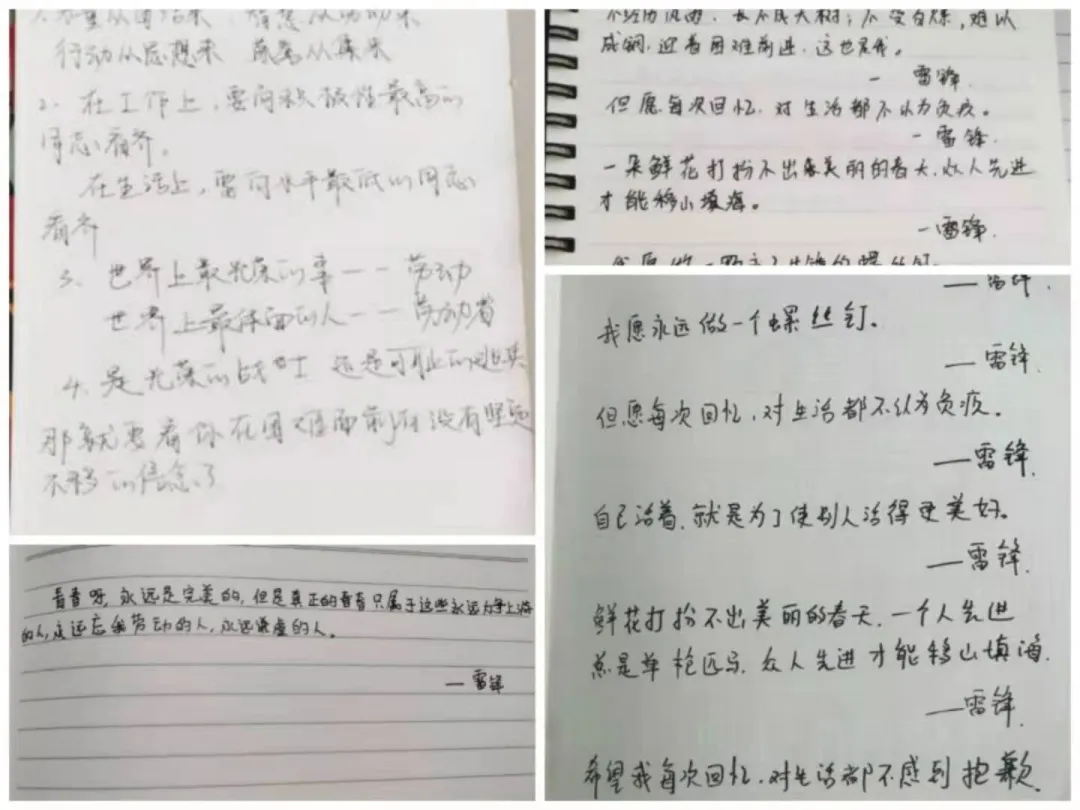 行动从思想来 荣誉从集体来
2. 在工作上，要向积极性最高的
同志看齐。
在生活上，要向水平最低的同志
看齐
3、世界上最光荣的事——劳动
世界上最体面的人——劳动者
4. 是光荣的战士 还是可耻的逃兵
那就要看你在困难面前有没有坚定
不移的信念了
青春呀，永远是完美的，但是真正的青春只属于这些永远力争上游
的人，永远忘我劳动的人，永远谦虚的人。
—雷锋
不经历风雨，长不成大树；不受百炼，难以
成钢。迎着困难前进，这也是我。
— 雷锋.
但愿每次回忆，对生活都不认为负疚。
—雷锋.
一朵鲜花打扮不出美丽的春天，众人先进
才能移山填海。
—雷锋.
——雷锋.
我愿永远做一个螺丝钉。
——雷锋.
但愿每次回忆，对生活都不认为负疚。
——雷锋.
自己活着，就是为了使别人活得更美好。
——雷锋.
鲜花打扮不出美丽的春天，一个人先进
总是单枪匹马，众人先进才能移山填海.
——雷锋.
希望我每次回忆，对生活都不感到抱歉.